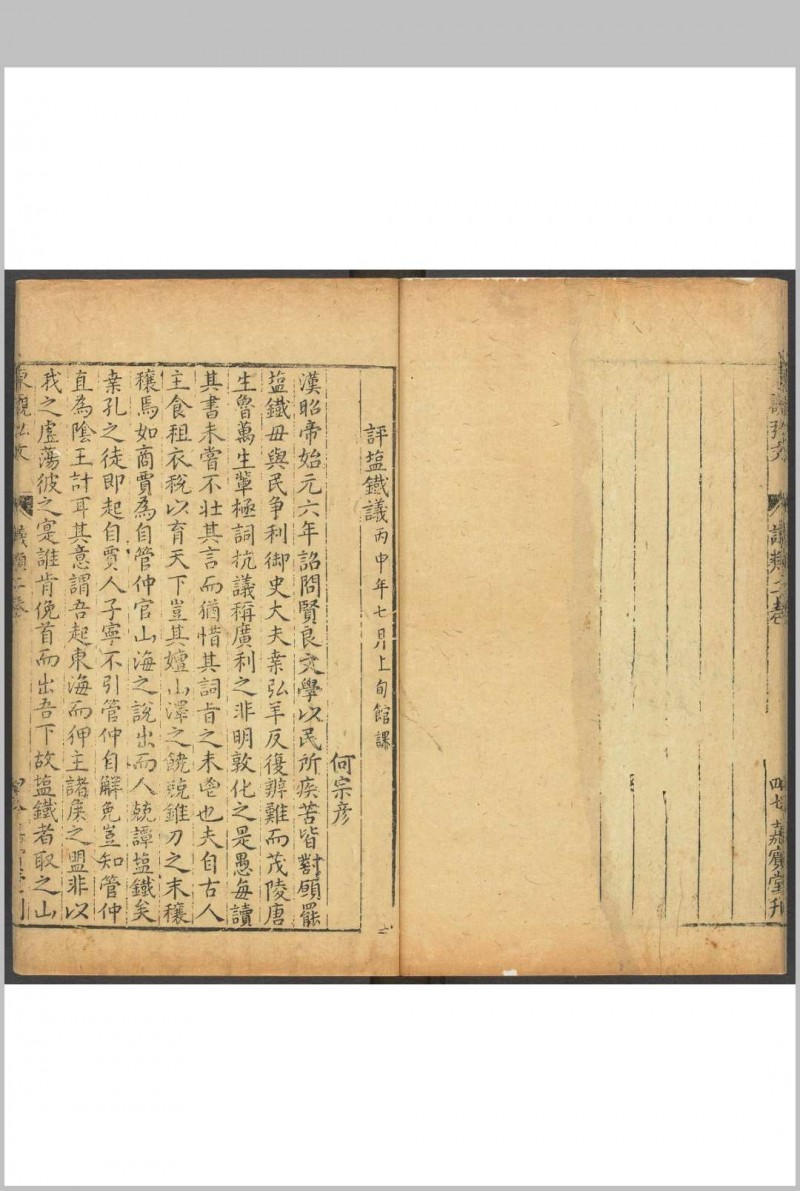 嘉賓堂刋
評塩鐵議丙申年七月上旬館課
何宗彦
漢昭帝始元六年詔問賢良文學以民所疾苦皆對願罷
塩鐵毋與民争利御史大夫桒弘羊反復辨難而茂陵唐
生魯萬生軰極詞抗議稱廣利之非明敦化之是愚每讀
其書未嘗不壯其言而猶惜其詞旨之未也夫自古人
主食租衣稅以育天下豈其嬗山澤之饒競錐刀之末穰
穰焉如商賈為自管仲官山海之說出而人競譚塩鐵矣
桒孔之徒即起自賈人子寧不引管仲自解免豈知管仲
直為隂王計耳其意謂吾起東海而狎主諸矦之盟非以
我之虛蕩彼之寔誰肯俛首而出吾下故塩鐵者取之山